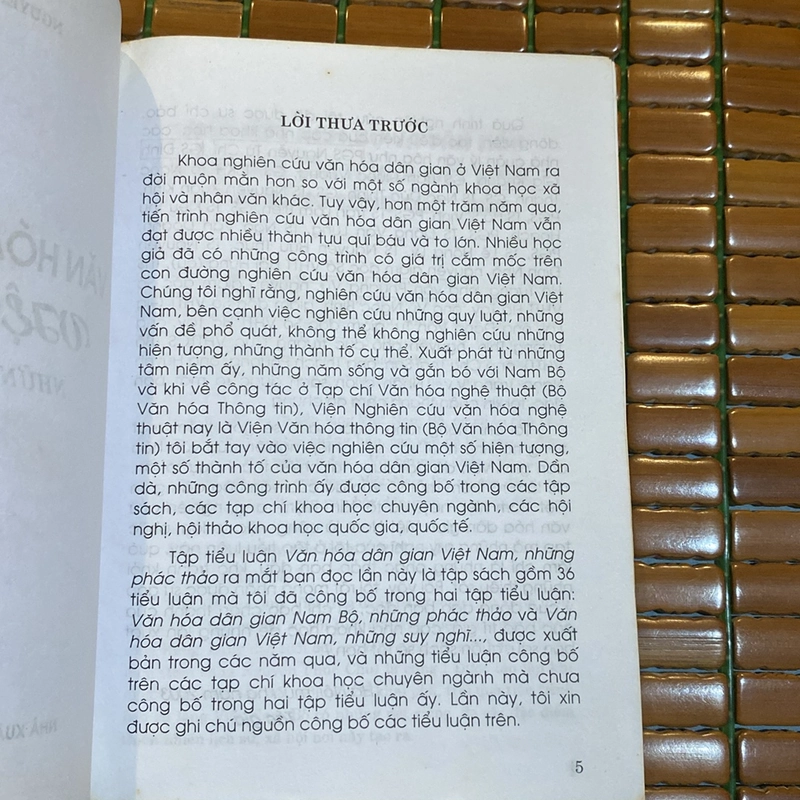 LỜI THƯA TRƯỚC
Khoa nghiên cứu văn hóa dân gian ở Việt Nam ra
đời muộn mằn hơn so với một số ngành khoa học xã
hội và nhân văn khác. Tuy vậy, hơn một trăm năm qua,
tiến trình nghiên cứu văn hóa dân gian Việt Nam vẫn
đạt được nhiều thành tựu quí báu và to lớn. Nhiều học
giả đã có những công trình có giá trị cắm mốc trên
con đường nghiên cứu văn hóa dân gian Việt Nam.
Chúng tôi nghĩ rằng, nghiên cứu văn hóa dân gian Việt
Nam, bên cạnh việc nghiên cứu những quy luật, những
vấn đề phổ quát, không thể không nghiên cứu những
hiện tượng, những thành tố cụ thể. Xuất phát từ những
tâm niệm ấy, những năm sống và gắn bó với Nam Bộ
và khi về công tác ở Tạp chí Văn hóa nghệ thuật (Bộ
Văn hóa Thông tin), Viện Nghiên cứu văn hóa nghệ
thuật nay là Viện Văn hóa thông tin (Bộ Văn hóa Thông
tin) tôi bắt tay vào việc nghiên cứu một số hiện tượng,
một số thành tố của văn hóa dân gian Việt Nam. Dần
dà, những công trình ấy được công bố trong các tập
sách, các tạp chí khoa học chuyên ngành, các hội
nghị, hội thảo khoa học quốc gia, quốc tế.
Tập tiểu luận Văn hóa dân gian Việt Nam, những
phác thảo ra mắt bạn đọc lần này là tập sách gồm 36
tiểu luận mà tôi đã công bố trong hai tập tiểu luận:
Văn hóa dân gian Nam Bộ, những phác thảo và Văn
hóa dân gian Việt Nam, những suy nghĩ..., được xuất
bản trong các năm qua, và những tiểu luận công bố
trên các tạp chí khoa học chuyên ngành mà chưa
công bố trong hai tập tiểu luận ấy. Lần này, tôi xin
được ghi chú nguồn công bố các tiểu luận trên.
5